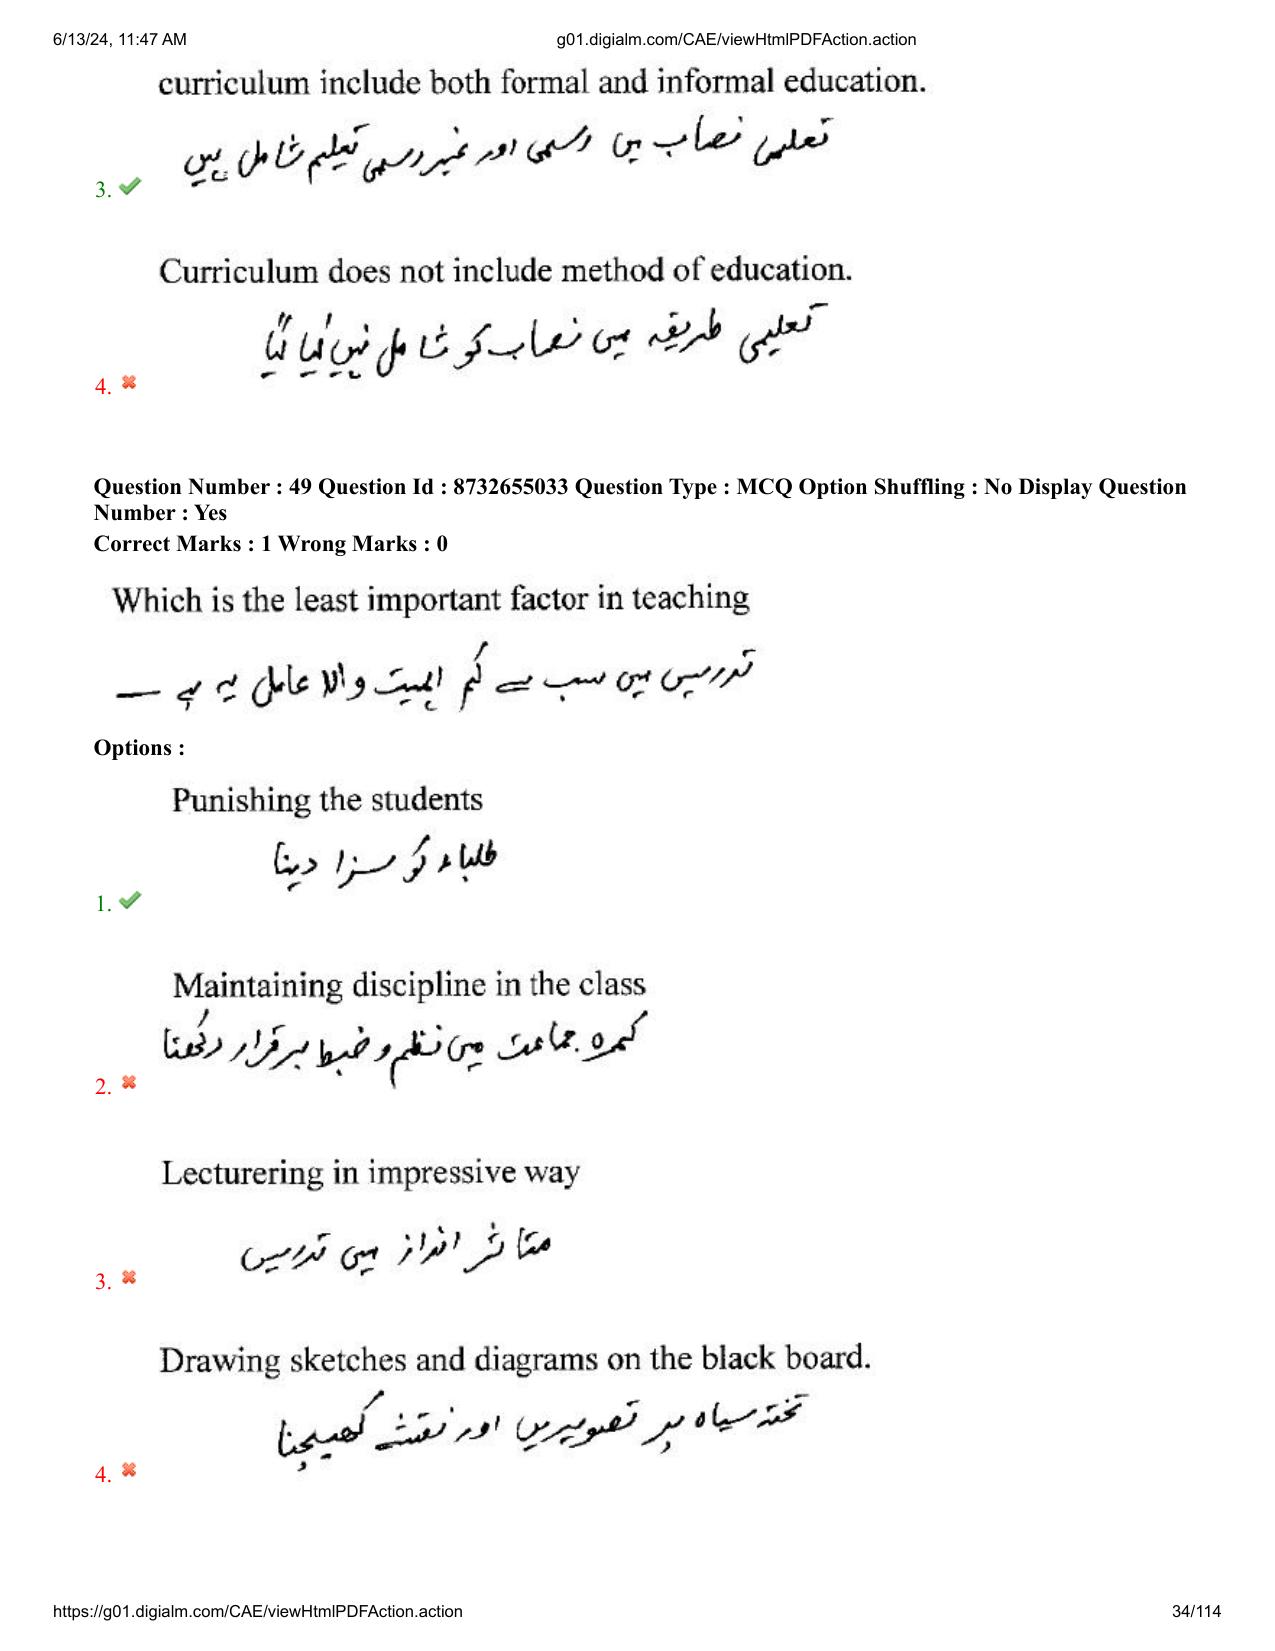 6/13/24, 11:47 AM g01.digialm.com/CAE/viewHtmlPDFAction.action
curriculum include both formal and informal education.
تعلیمی نصاب میں رسمی اور غیر رسمی تعلیم شامل ہیں
3.
Curriculum does not include method of education.
تعلیمی طریقہ میں نصاب کو شامل نہیں کیا گیا
4.
Question Number : 49 Question Id : 8732655033 Question Type : MCQ Option Shuffling : No Display Question
Number : Yes
Correct Marks : 1 Wrong Marks : 0
Which is the least important factor in teaching
تدریس میں سب سے کم اہمیت والا عامل یہ ہے —
Options :
Punishing the students
طلباء کو سزا دینا
1.
Maintaining discipline in the class
کمرہ جماعت میں نظم و ضبط برقرار رکھنا
2.
Lecturering in impressive way
متاثر انداز میں تدریس
3.
Drawing sketches and diagrams on the black board.
تختہ سیاہ پر تصویریں اور نقشے کھینچنا
4.
https://g01.digialm.com/CAE/viewHtmlPDFAction.action 34/114